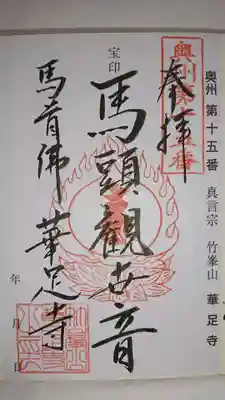 奥州 第十五番 真言宗 竹峯山 華足寺
奉拝
宝印
馬頭観世音
馬首佛 華足寺
年 月 日